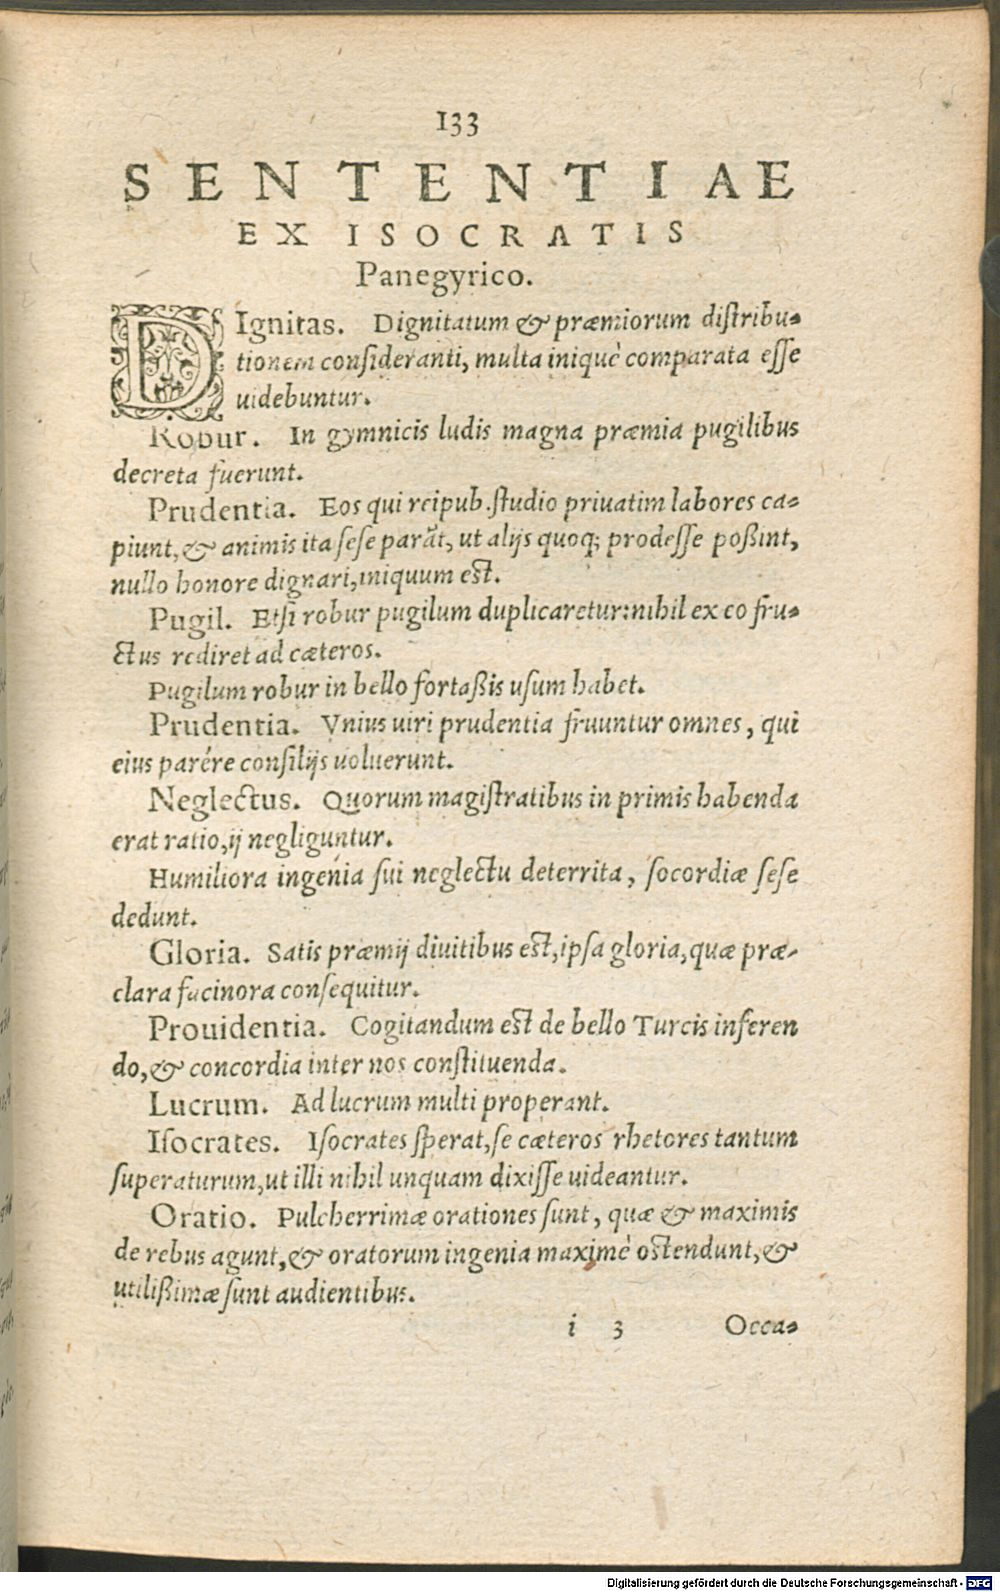 133
SENTENTIAE
EX ISOCRATIS
Panegyrico.
DIgnitas. Dignitatum & præmiorum distribu-
tionem consideranti, multa iniquè comparata esse
uidebuntur.
Robur. In gymnicis ludis magna præmia pugilibus
decreta fuerunt.
Prudentia. Eos qui reipub. studio priuatim labores ca-
piunt, & animis ita sese parãt, ut alijs quoq; prodesse poßint,
nullo honore dignari, iniquum est.
Pugil. Etsi robur pugilum duplicaretur: nihil ex eo fru-
ctus rediret ad cæteros.
Pugilum robur in bello fortaßis usum habet.
Prudentia. Vnius uiri prudentia fruuntur omnes, qui
eius parére consilijs uoluerunt.
Neglectus. Quorum magistratibus in primis habenda
erat ratio, ij negliguntur.
Humiliora ingenia sui neglectu deterrita, socordiæ sese
dedunt.
Gloria. Satis præmij diuitibus est, ipsa gloria, quæ præ-
clara facinora consequitur.
Prouidentia. Cogitandum est de bello Turcis inferen
do, & concordia inter nos constituenda.
Lucrum. Ad lucrum multi properant.
Isocrates. Isocrates sperat, se cæteros rhetores tantum
superaturum, ut illi nihil unquam dixisse uideantur.
Oratio. Pulcherrimæ orationes sunt, quæ & maximis
de rebus agunt, & oratorum ingenia maximè ostendunt, &
utilißimæ sunt audientibus.
i 3 Occa-
Digitalisierung gefördert durch die Deutsche Forschungsgemeinschaft - DFG